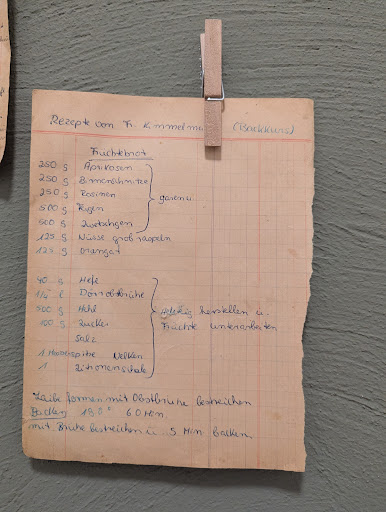 Rezepte von Fr. Kimmelma (Backkurs)
Früchtebrot
250 g Aprikosen
250 g Birnenschnitze
250 g Rosinen
500 g Feigen
500 g Zwetschgen
125 g Nüsse grob raspeln
125 g Orangat
40 g Hefe
1/2 l Dörrobstbrühe
500 g Mehl
100 g Zucker
Salz
1 Messerspitze Nelken
1 Zitronenschale
Hefeteig herstellen u.
Früchte unterarbeiten
Laibe formen mit Obstbrühe bestreichen
Backen 180° 60 Min
mit Brühe bestreichen u. 5 Min backen.